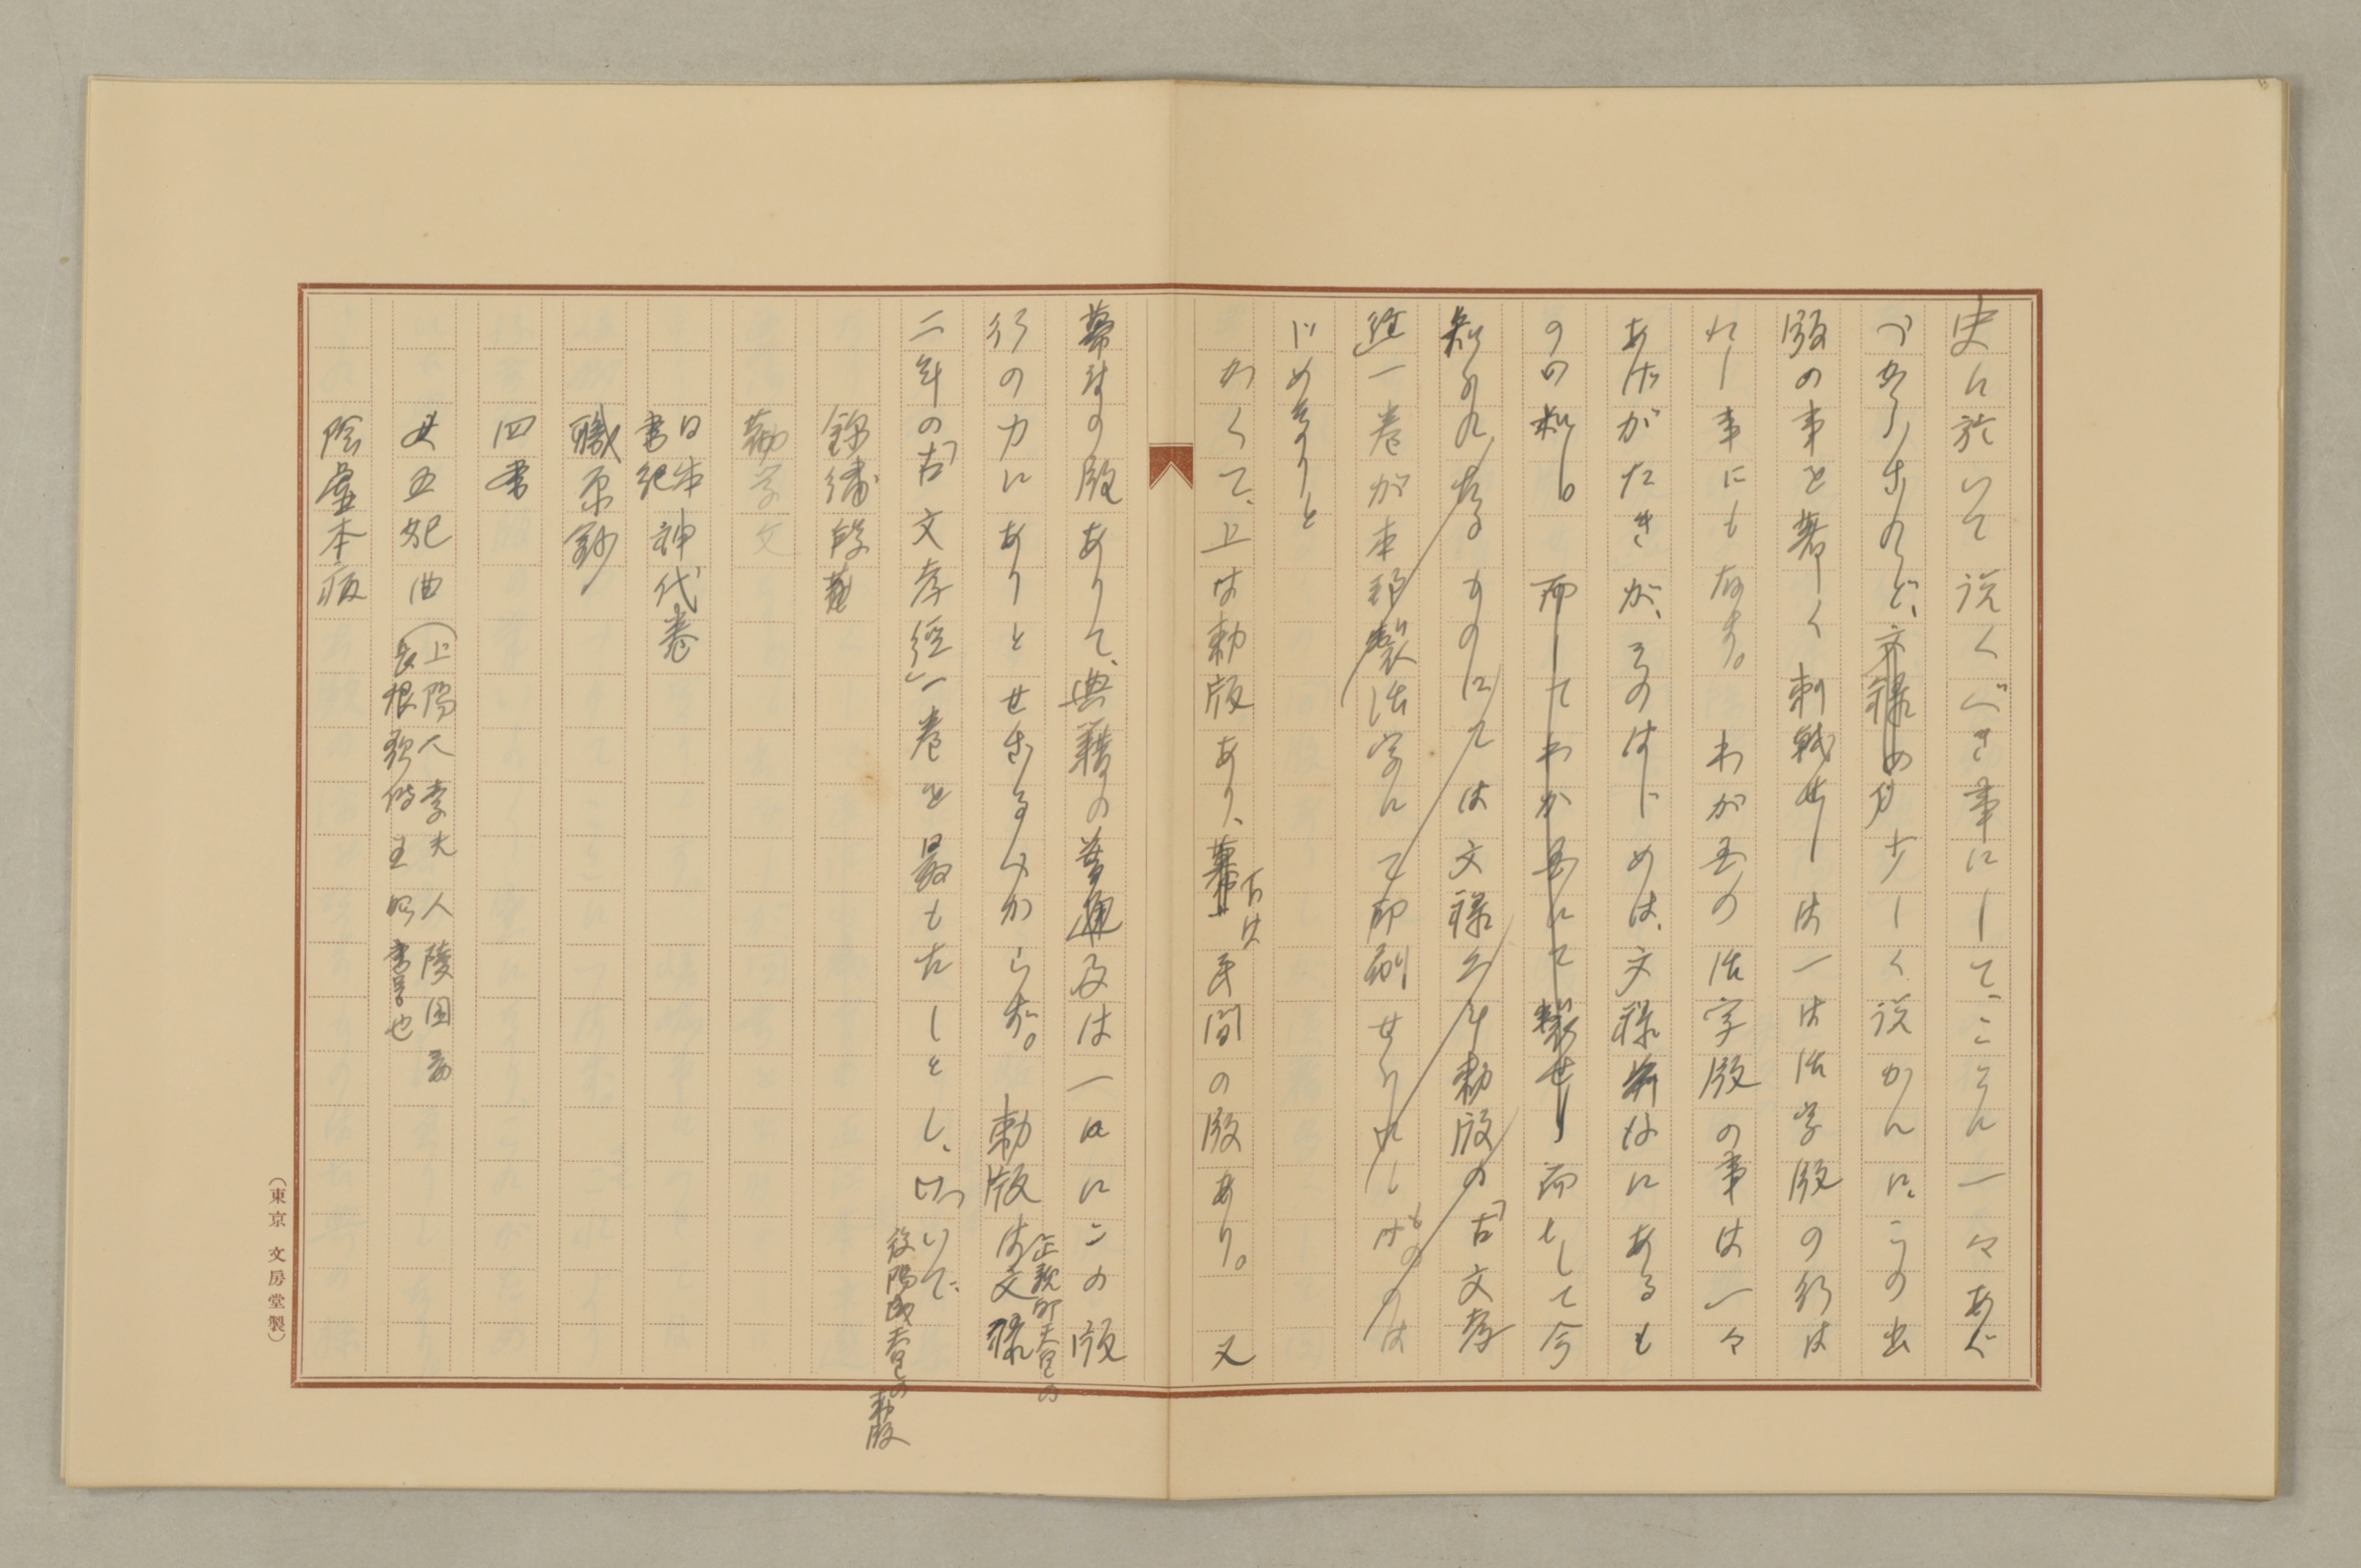 史に於いて説くべき事にして、こゝに一々あぐ
べからざれど、文禄の 少しく説かんに、この出
版の事を著しく刺戟せしは一は活字版の行は
れし事にも存す。わが国の活字版の事は一々
あげがたきが、そのはじめは、文禄 にあるも
の如し。而してわが国にて製せし而して今
知られたるものにては文禄二年勅版の「古文孝
経」一巻が本邦製活字にて印刷せられしものゝは
じめなりと
かくて、上は勅版あり、幕
下は
民間の版あり。又
幕府の版ありて、典籍の普通及は一にこの版
行の力にありとせざるべからず。勅版は
正親町天皇の
文禄
二年の「古文孝經」一巻を最も古しとし、ついで、
後陽成天皇の勅版
錦繍段
勧学文
日本書紀神代巻
職原鈔
四書
五妃曲(上陽人 李夫人 陵園妾
長恨歌傳 王昭 也
陰虚本病
(東京 文房堂製)